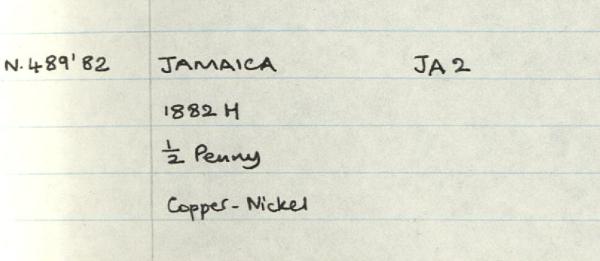 N.489'82 JAMAICA JA2
1882 H
½ Penny
Copper-Nickel